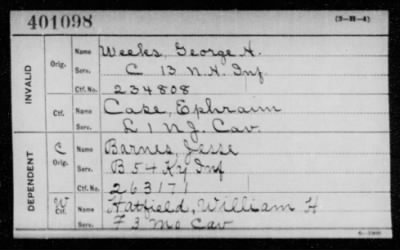 401098 (3-H-4)
INVALID
Orig. Name Weeks, George H.
Serv. C 13 N.H. Inf
Ctf. No. 234808
Ctf. Name Case, Ephraim
Serv. L 1 N.J. Cav.
DEPENDENT
C Orig. Name Barnes, Jesse
Serv. B 54 Ky Inf
Ctf. No. 263171
W Ctf. Name Hatfield, William H
Serv. F 3 Mo Cav